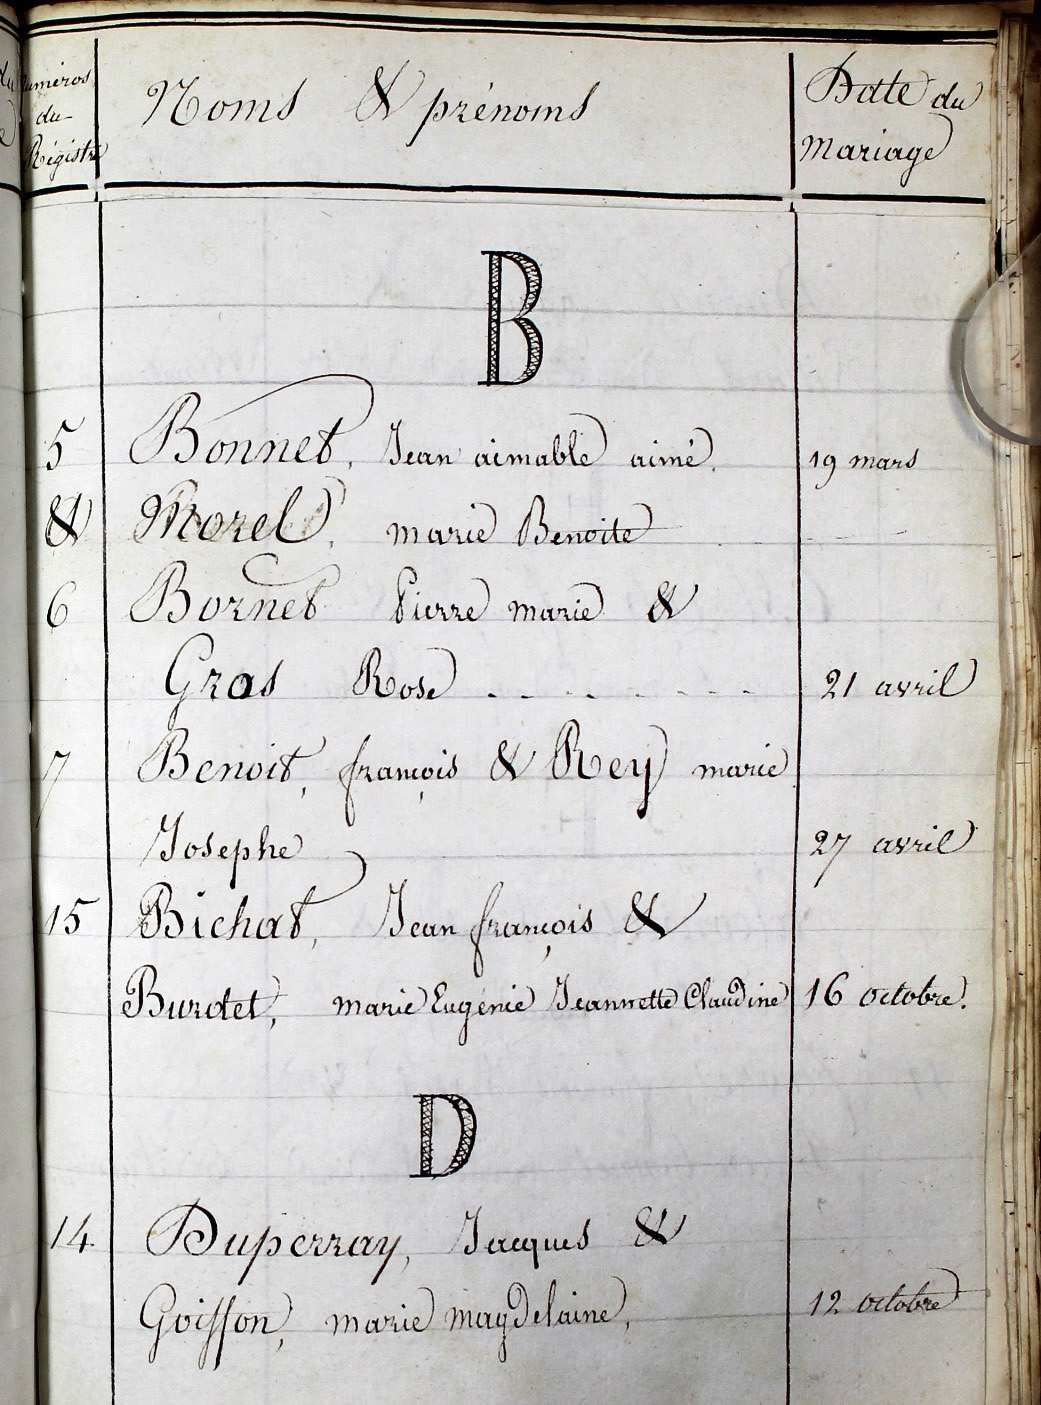 Numéros du Régistre
Noms & prénoms
Date du mariage
B
5 Bonnet, Jean aimable aimé. 19 mars
& Morel, marie Benoite
6 Bornet Pierre marie &
Gras Rose - - - - - - - - 21 avril
7 Benoit, françois & Rey marie
Josephe 27 avril
15 Bichat, Jean françois &
Burdet, marie Eugénie Jeannette Claudine 16 octobre.
D
14. Duperray, Jacques &
Goiffon, marie magdelaine, 12 octobre